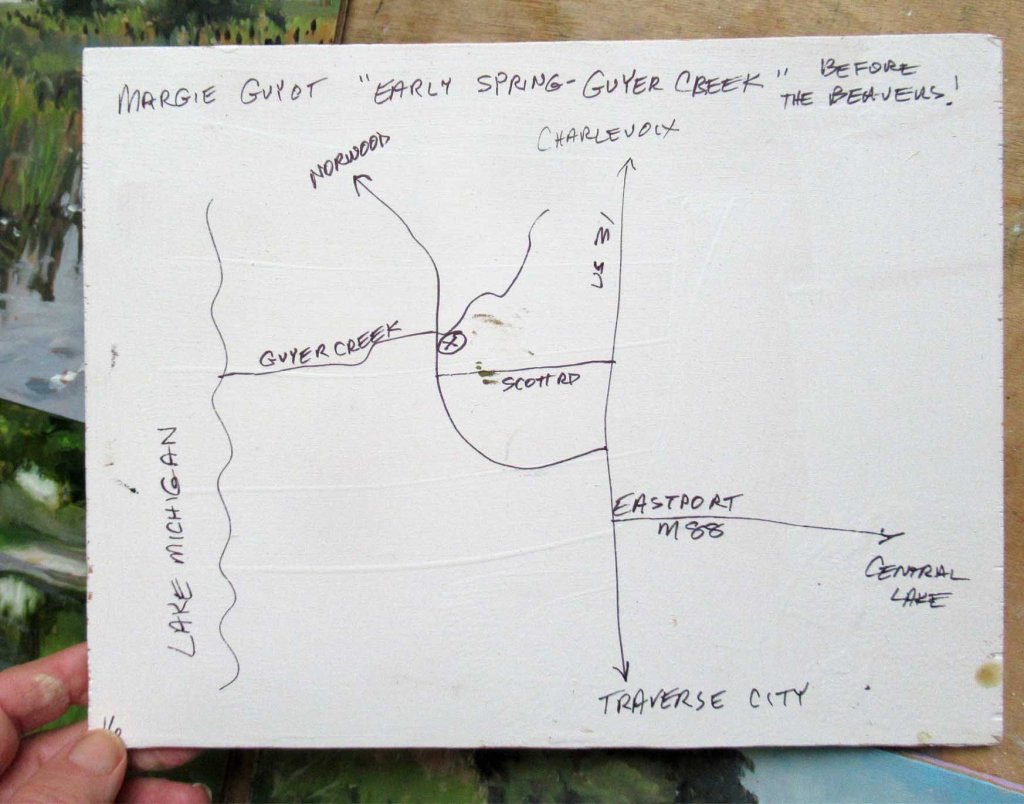 MARGIE GUYOT "EARLY SPRING-GUYER CREEK" BEFORE
THE BEAVERS!
CHARLEVOIX
NORWOOD
US 31
GUYER CREEK
SCOTT RD
LAKE MICHIGAN
EASTPORT
M88
CENTRAL
LAKE
TRAVERSE CITY